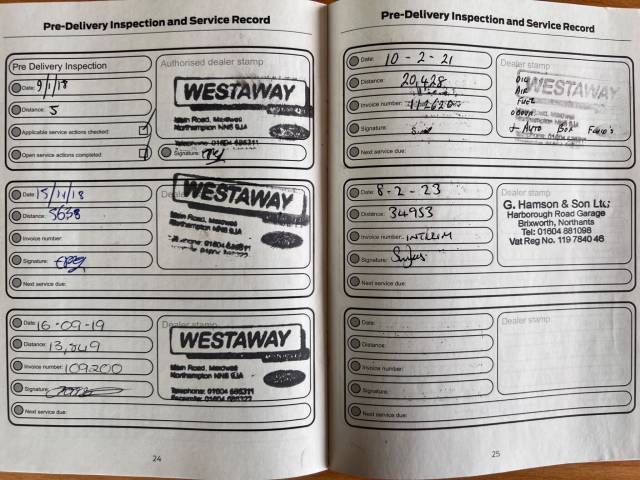 Pre-Delivery Inspection and Service Record
Pre Delivery Inspection
Date: 9/1/18
Distance: 5
Applicable service actions checked:
Open service actions completed:
Authorised dealer stamp
WESTAWAY
Main Road, Maidwell
Northampton NN6 9JA
Telephone: 01604 686311
Signature:
Date: 15/11/18
Distance: 5638
Invoice number:
Signature:
Next service due:
WESTAWAY
Main Road, Maidwell
Northampton NN6 9JA
Date: 16-09-19
Distance: 13,849
Invoice number: 109200
Signature:
Next service due:
Dealer stamp
WESTAWAY
Main Road, Maidwell
Northampton NN6 9JA
Telephone: 01604 686311
24
Pre-Delivery Inspection and Service Record
Date: 10-2-21
Distance: 20,428
Invoice number:
Signature:
Next service due:
Dealer stamp
WESTAWAY
OIL
AIR
FUEL
ODOUR
+ AUTO BOX
Date: 8-2-23
Distance: 34953
Invoice number: INTERIM
Signature:
Next service due:
Dealer stamp
G. Hamson & Son Ltd.
Harborough Road Garage
Brixworth, Northants
Tel: 01604 881098
Vat Reg No. 119 7840 46
Date:
Distance:
Invoice number:
Signature:
Next service due:
Dealer stamp
25